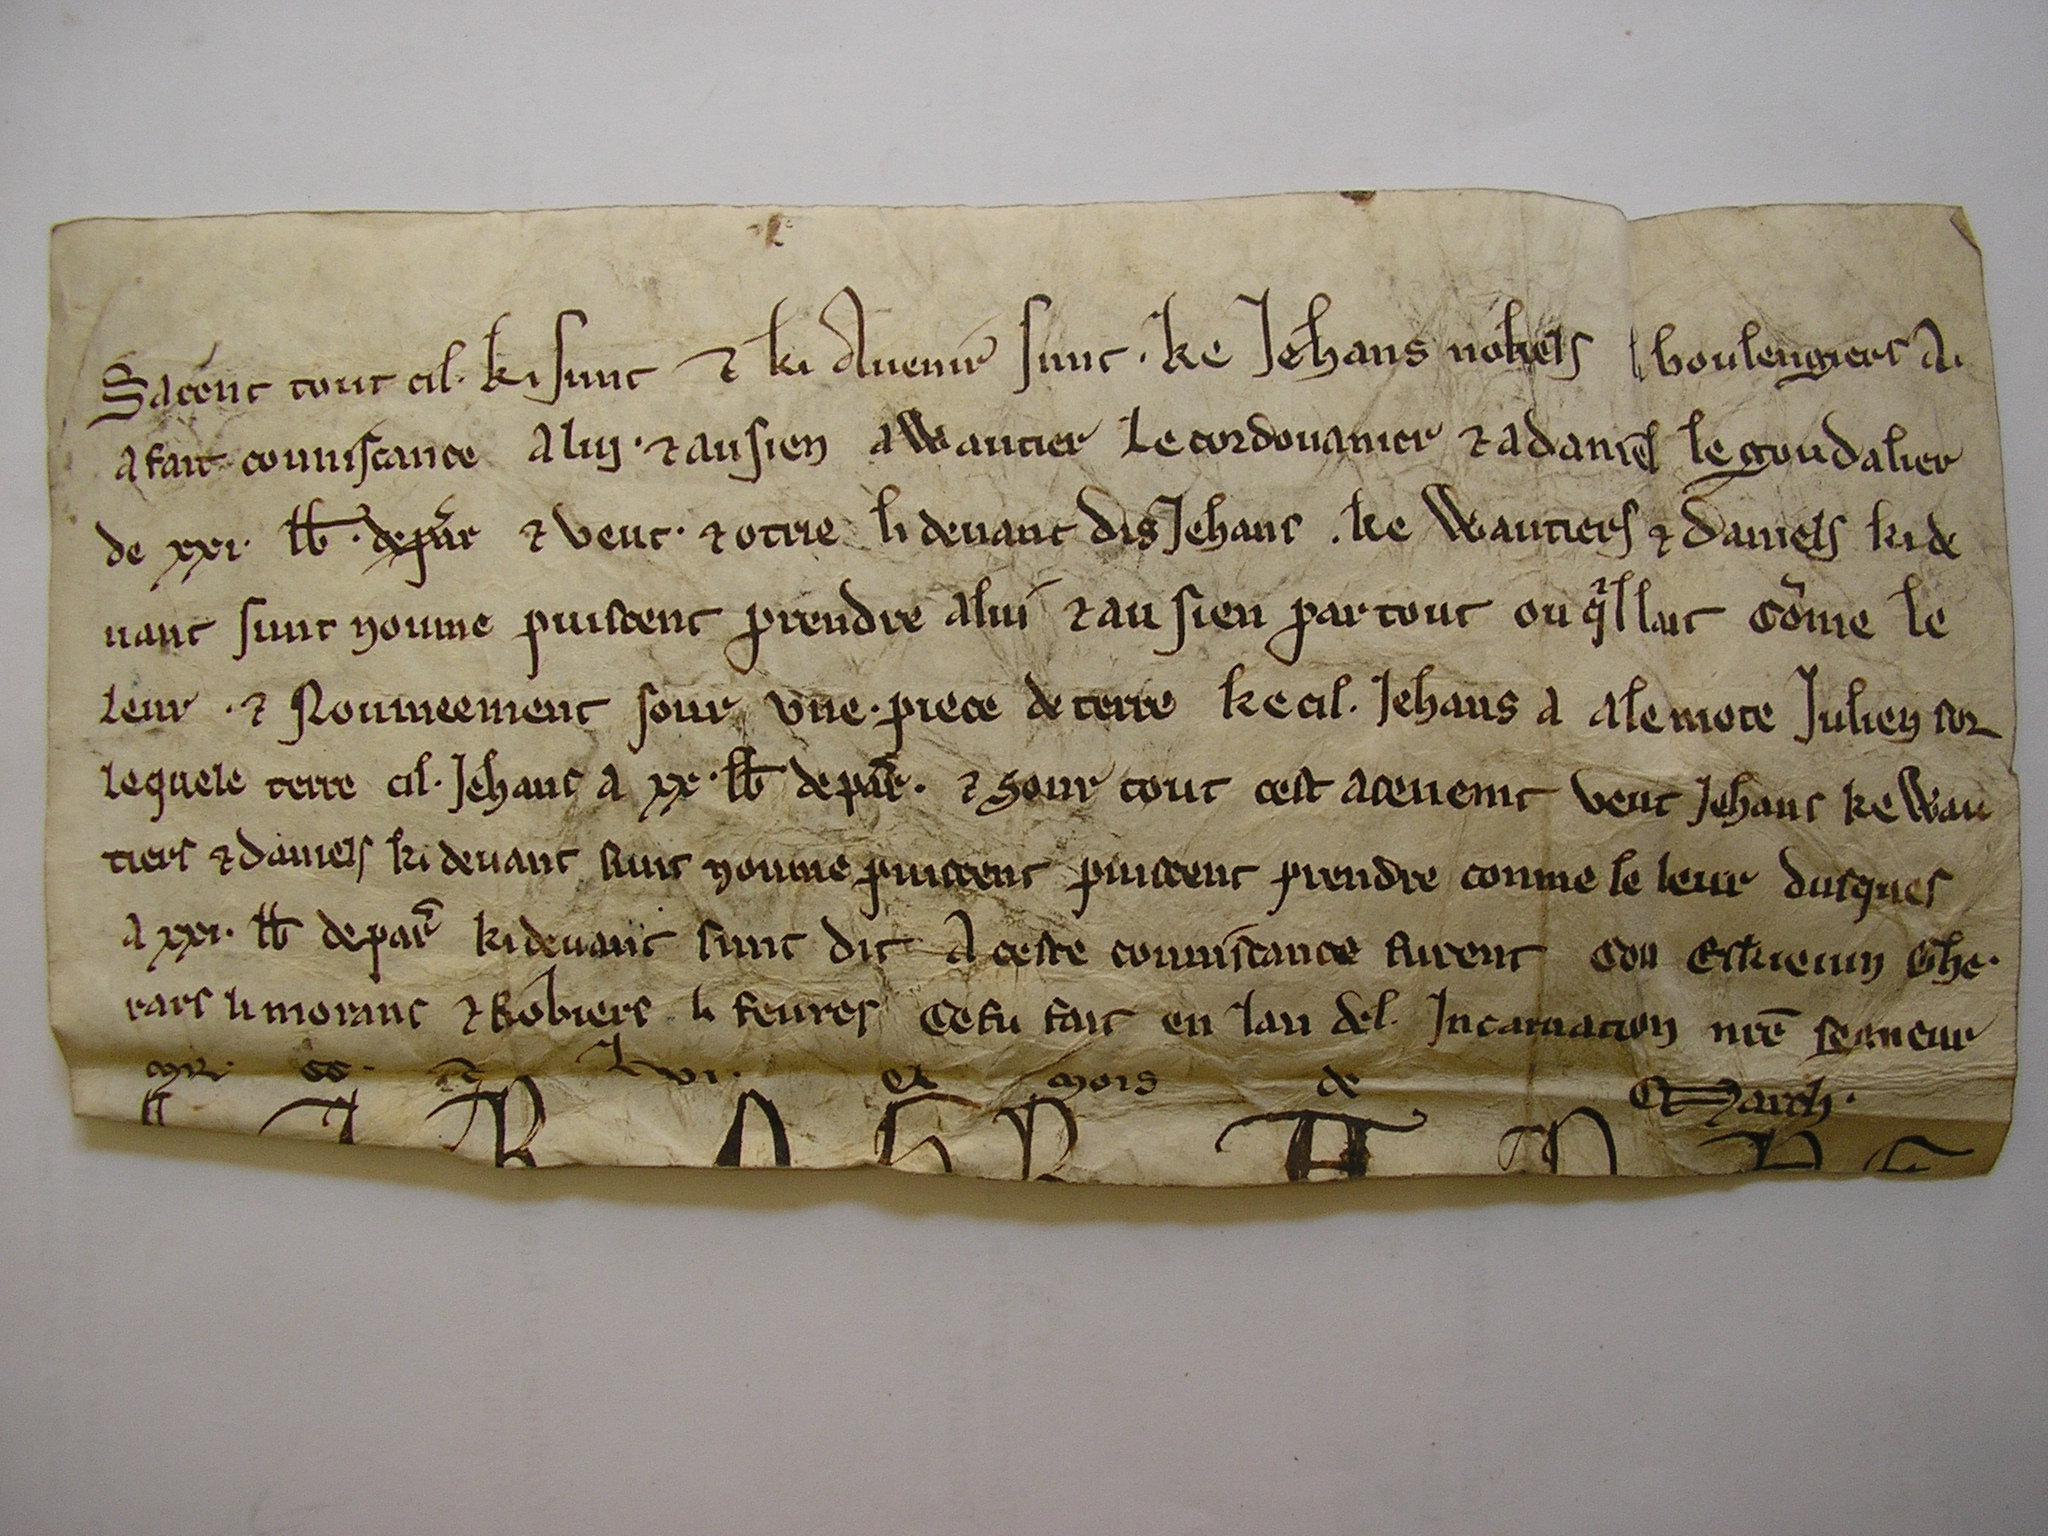 Sacent tout cil. ki sunt ⁊ ki Auenir sunt. ke Jehans nokels li boulengiers A.
A fait connistance A lui. ⁊ au sien A Wautier le cordouanier ⁊ a daniel le goudalier
de xxi. lb. de par ⁊ veut. ⁊ otrie li deuant dis Jehans. ke Wautiers ⁊ daniels ki de
uant sunt noume puiscent prendre a lui ⁊ au sien par tout ou qil lait come le
leur. ⁊ Noumeement sour vne. piece de terre ke cil. Jehans A A le mote Julien sor
lequele terre cil. Jehans A xx. lb de par. ⁊ sour tout cest acenemt veut Jehans ke Wau
tiers ⁊ daniels ki deuant sunt noume puiscent puiscent prendre conme le leur dusques
A xxi. lb de par ki deuant sunt dit A ceste connistance furent Con Eskieuin Ghe.
rars li morans ⁊ Robiers li feures Ce fu fait en lan del. Incarnation nre segneur
M. CC. ⁊ Lvi. el mois de March.